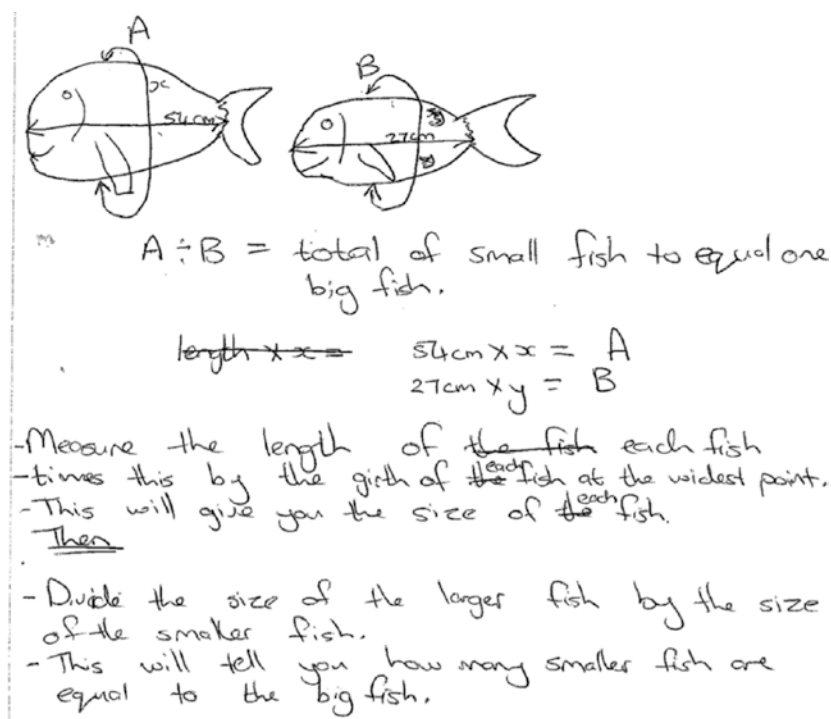 A
x
54cm
B
27cm
A ÷ B = total of small fish to equal one
big fish.
length × x =
54cm × x = A
27cm × y = B
- Measure the length of the fish each fish
- times this by the girth of the each fish at the widest point.
- This will give you the size of the each fish.
Then
- Divide the size of the larger fish by the size
of the smaller fish.
- This will tell you how many smaller fish are
equal to the big fish.